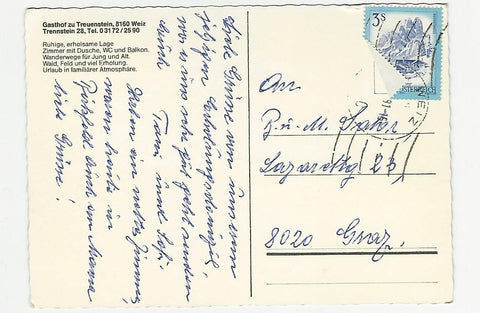 Gasthof zu Treuenstein, 8160 Weiz
Trennstein 28, Tel. 0 31 72 / 25 90
Ruhige, erholsame Lage
Zimmer mit Dusche, WC und Balkon.
Wanderwege für Jung und Alt.
Wald, Feld und viel Erholung.
Urlaub in familiärer Atmosphäre.
Liebe Grüße von unserem
jetzigen Erholungsurlaub,
wo es uns sehr gut geht senden
Euch
Haben ein nettes Zimmer,
waren heute in
liebe Grüße!
3 S
ÖSTERREICH
WEIZ
An
Lazarettg
8020 Graz.